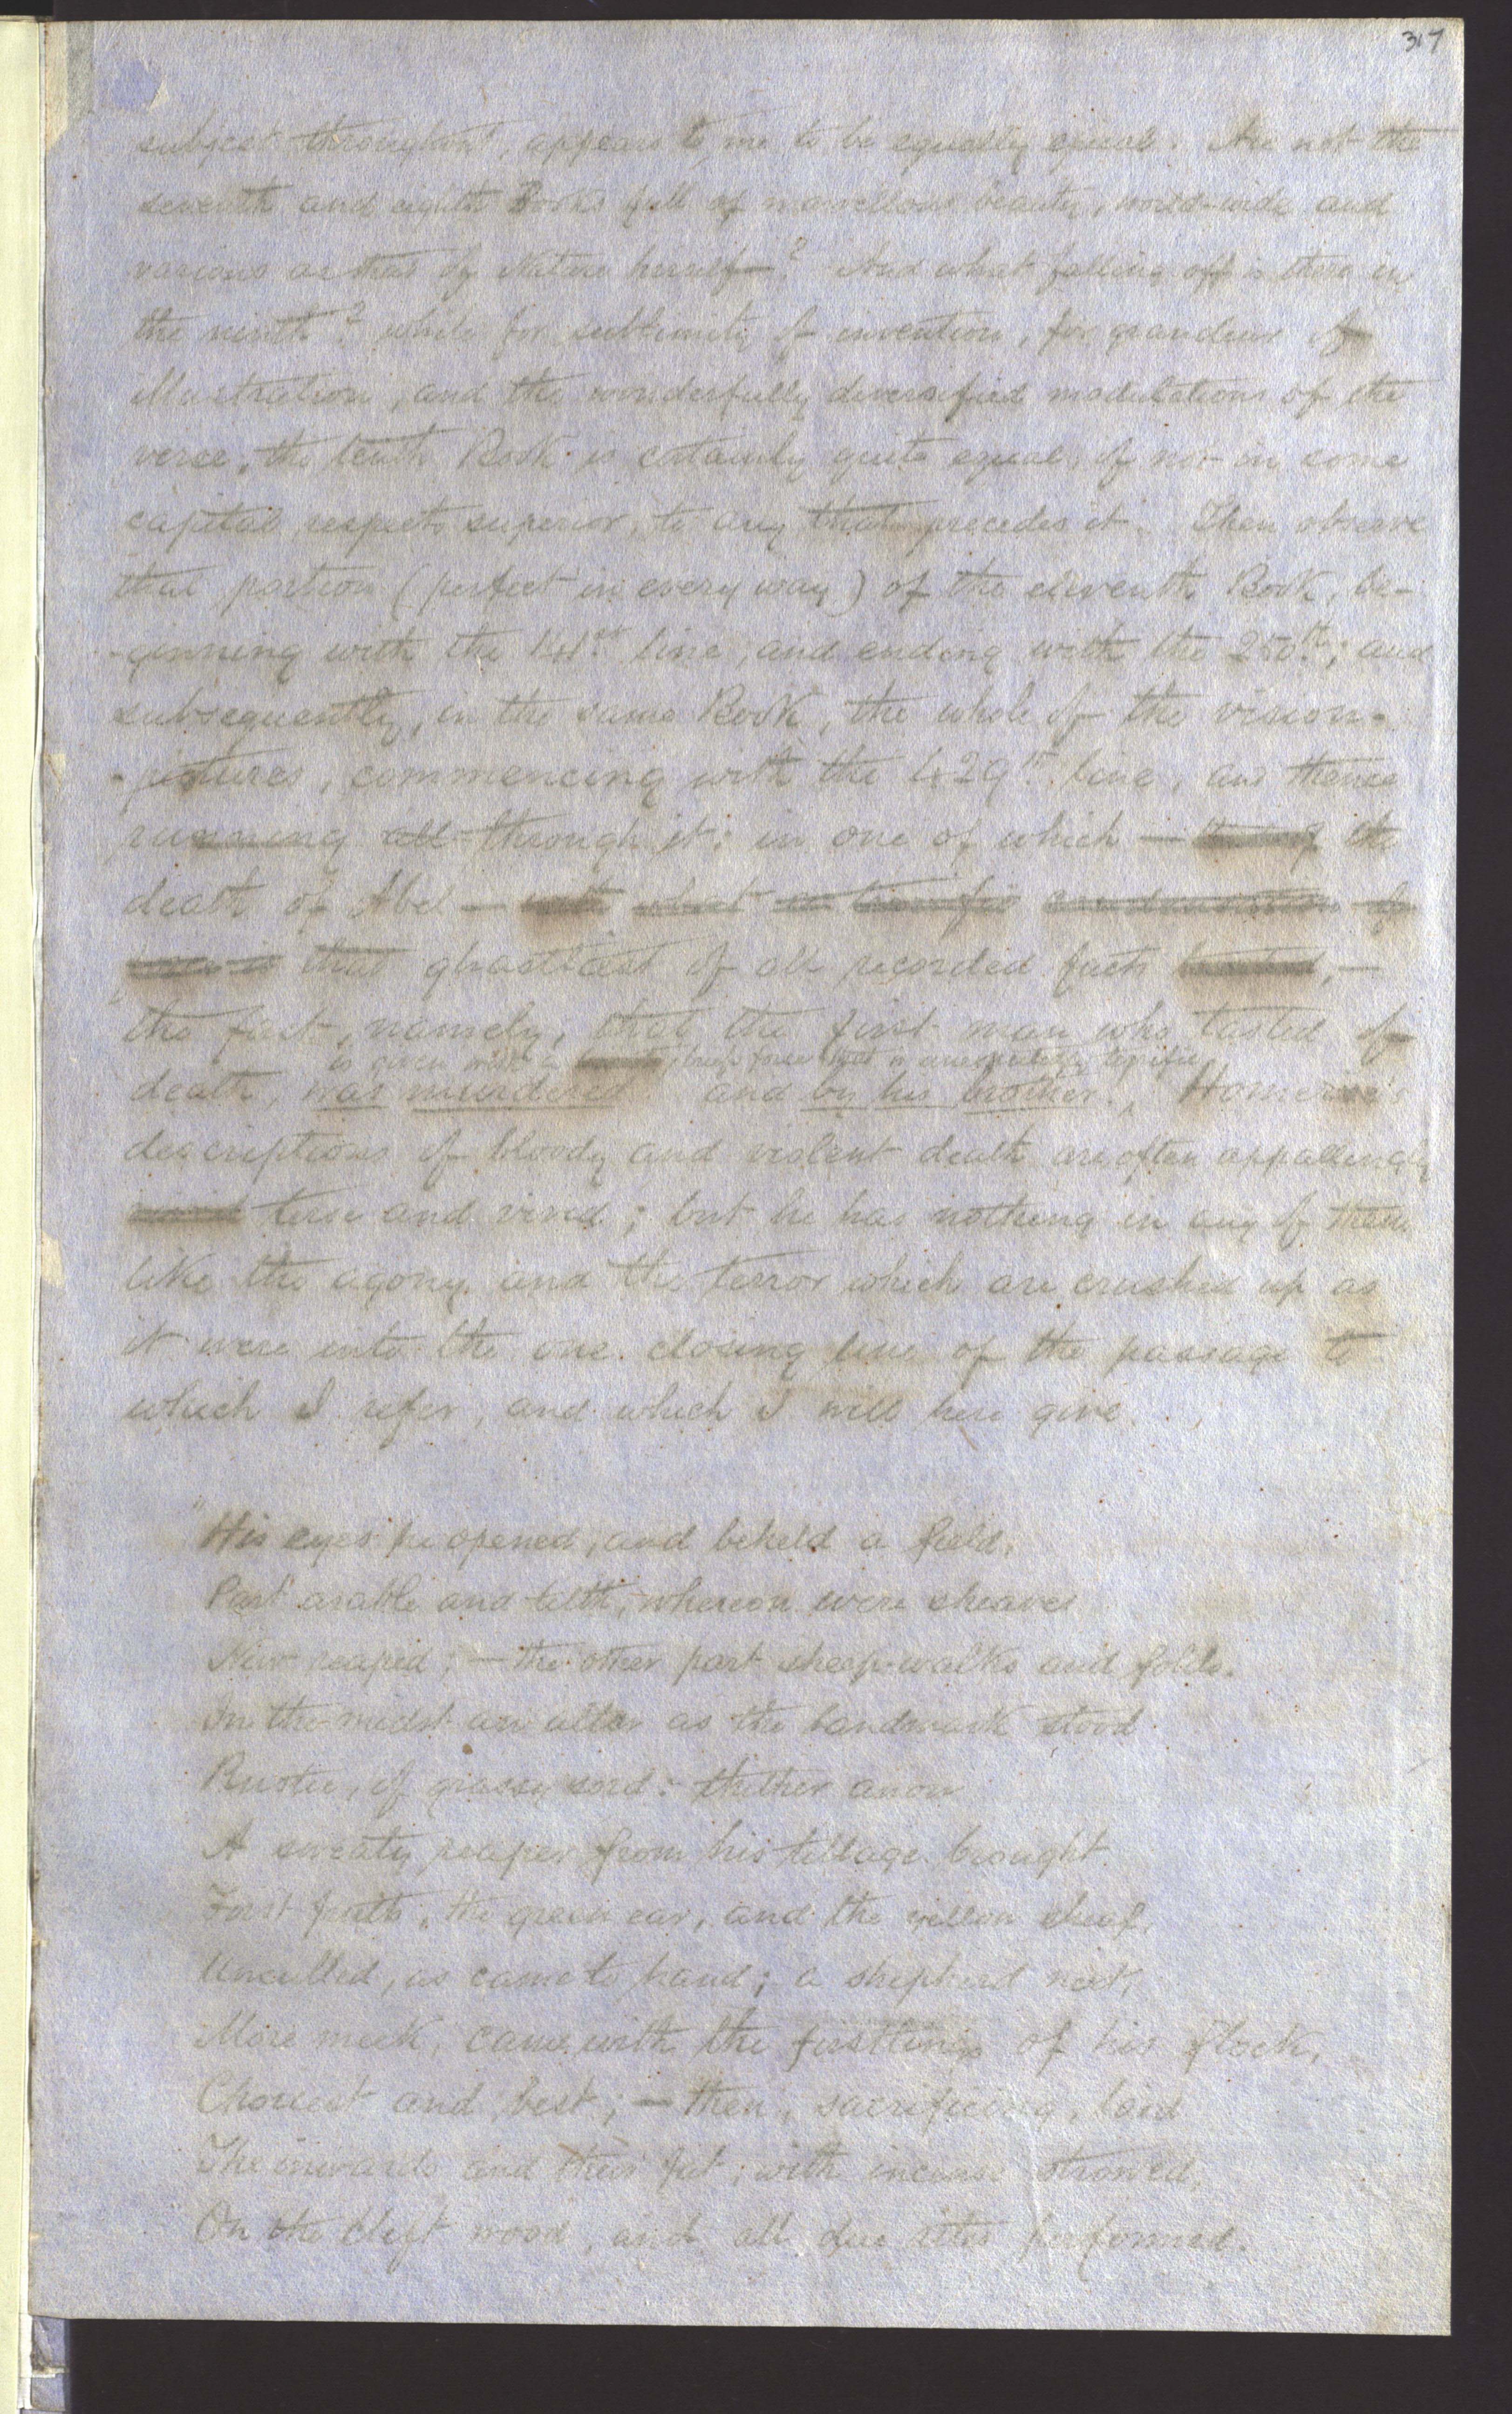 317
subject throughout, appears to me to be equally equal. Are not the
seventh and eighth Books full of marvellous beauty, world-wide and
various as that of Nature herself? And what falling off is there in
the ninth? while for sublimity of invention, for grandeur of
illustration, and the wonderfully diversified modulations of the
verse, the tenth Book is certainly quite equal, if not in some
capital respects superior, to any that precedes it. Then observe
that portion (perfect in every way) of the eleventh Book, be-
-ginning with the 141st line, and ending with the 250th; and
subsequently, in the same Book, the whole of the vision-
-pictures, commencing with the 429th line, and thence
running all through it: in one of which — the
death of Abel — with what a terrific of
that ghastliest of all recorded facts —
the fact, namely, that the first man who tasted of
is given with a force that is unexpectedly terrific
death, was murdered and by his brother. Homer's
descriptions of bloody and violent death are often appallingly
terse and vivid; but he has nothing in any of them
like the agony and the terror which are crushed up as
it were into the one closing line of the passage to
which I refer, and which I will here give.
"His eyes he opened, and beheld a field,
Part arable and tilth, whereon were sheaves
New reaped; — the other part sheep-walks and folds.
In the midst an altar as the landmark stood
Rustic, of grassy sord: thither anon
A sweaty reaper from his tillage brought
First fruits, the green ear, and the yellow sheaf,
Unculled, as came to hand; a shepherd next,
More meek, came with the firstlings of his flock,
Choicest and best; — then, sacrificing, laid
The inwards and their fat, with incense strowed,
On the cleft wood, and all due rites performed.